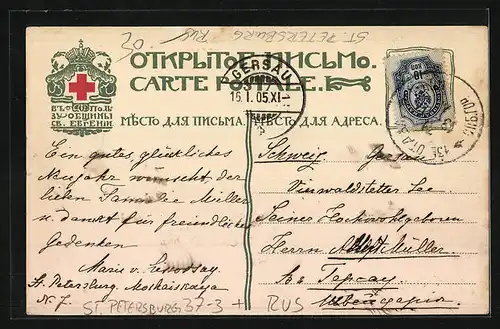 ST. PETERSBURG RUS
ОТКРЫТОЕ ПИСЬМО.
CARTE POSTALE.
GERSAU
16.I.05.XI
ВЪ ПОЛЬ
ЗУ ОБЩИНЫ
СВ. ЕВГЕНІИ
МѢСТО ДЛЯ ПИСЬМА.
МѢСТО ДЛЯ АДРЕСА.
Ein gutes, glückliches
Neujahr wünscht, der
lieben Familie Müller
u. dankt für freundliches
Gedenken
Marie v.
St. Petersburg.
N. 7.
Schweiz Gersau
Vierwaldstetter See
Seiner Hochwohlgeboren
Herrn Müller
въ Герсау
Швейцарія.
ST. PETERSBURG 37-3 + RUS